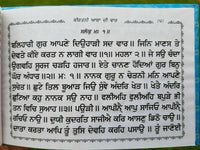 ਸਲੋਕੁ ਮਃ ੧॥
ਬਲਿਹਾਰੀ ਗੁਰ ਆਪਣੇ ਦਿਉਹਾੜੀ ਸਦ ਵਾਰ॥ ਜਿਨਿ ਮਾਣਸ ਤੇ
ਦੇਵਤੇ ਕੀਏ ਕਰਤ ਨ ਲਾਗੀ ਵਾਰ॥੧॥ ਮਹਲਾ ੨॥ ਜੇ ਸਉ ਚੰਦਾ
ਉਗਵਹਿ ਸੂਰਜ ਚੜਹਿ ਹਜਾਰ॥ ਏਤੇ ਚਾਨਣ ਹੋਦਿਆਂ ਗੁਰ ਬਿਨੁ
ਘੋਰ ਅੰਧਾਰ॥੨॥ ਮਃ ੧॥ ਨਾਨਕ ਗੁਰੂ ਨ ਚੇਤਨੀ ਮਨਿ ਆਪਣੈ
ਸੁਚੇਤ॥ ਛੁਟੇ ਤਿਲ ਬੂਆੜ ਜਿਉ ਸੁੰਞੇ ਅੰਦਰਿ ਖੇਤ॥ ਖੇਤੈ ਅੰਦਰਿ
ਛੁਟਿਆ ਕਹੁ ਨਾਨਕ ਸਉ ਨਾਹ॥ ਫਲੀਅਹਿ ਫੁਲੀਅਹਿ ਬਪੁੜੇ ਭੀ
ਤਨ ਵਿਚਿ ਸੁਆਹ॥੩॥ ਪਉੜੀ॥ ਆਪੀਨ੍ਹੈ ਆਪੁ ਸਾਜਿਓ ਆਪੀਨ੍ਹੈ
ਰਚਿਓ ਨਾਉ॥ ਦੁਯੀ ਕੁਦਰਤਿ ਸਾਜੀਐ ਕਰਿ ਆਸਣੁ ਡਿਠੋ ਚਾਉ॥
ਦਾਤਾ ਕਰਤਾ ਆਪਿ ਤੂੰ ਤੁਸਿ ਦੇਵਹਿ ਕਰਹਿ ਪਸਾਉ॥ ਤੂੰ ਜਾਣੋਈ